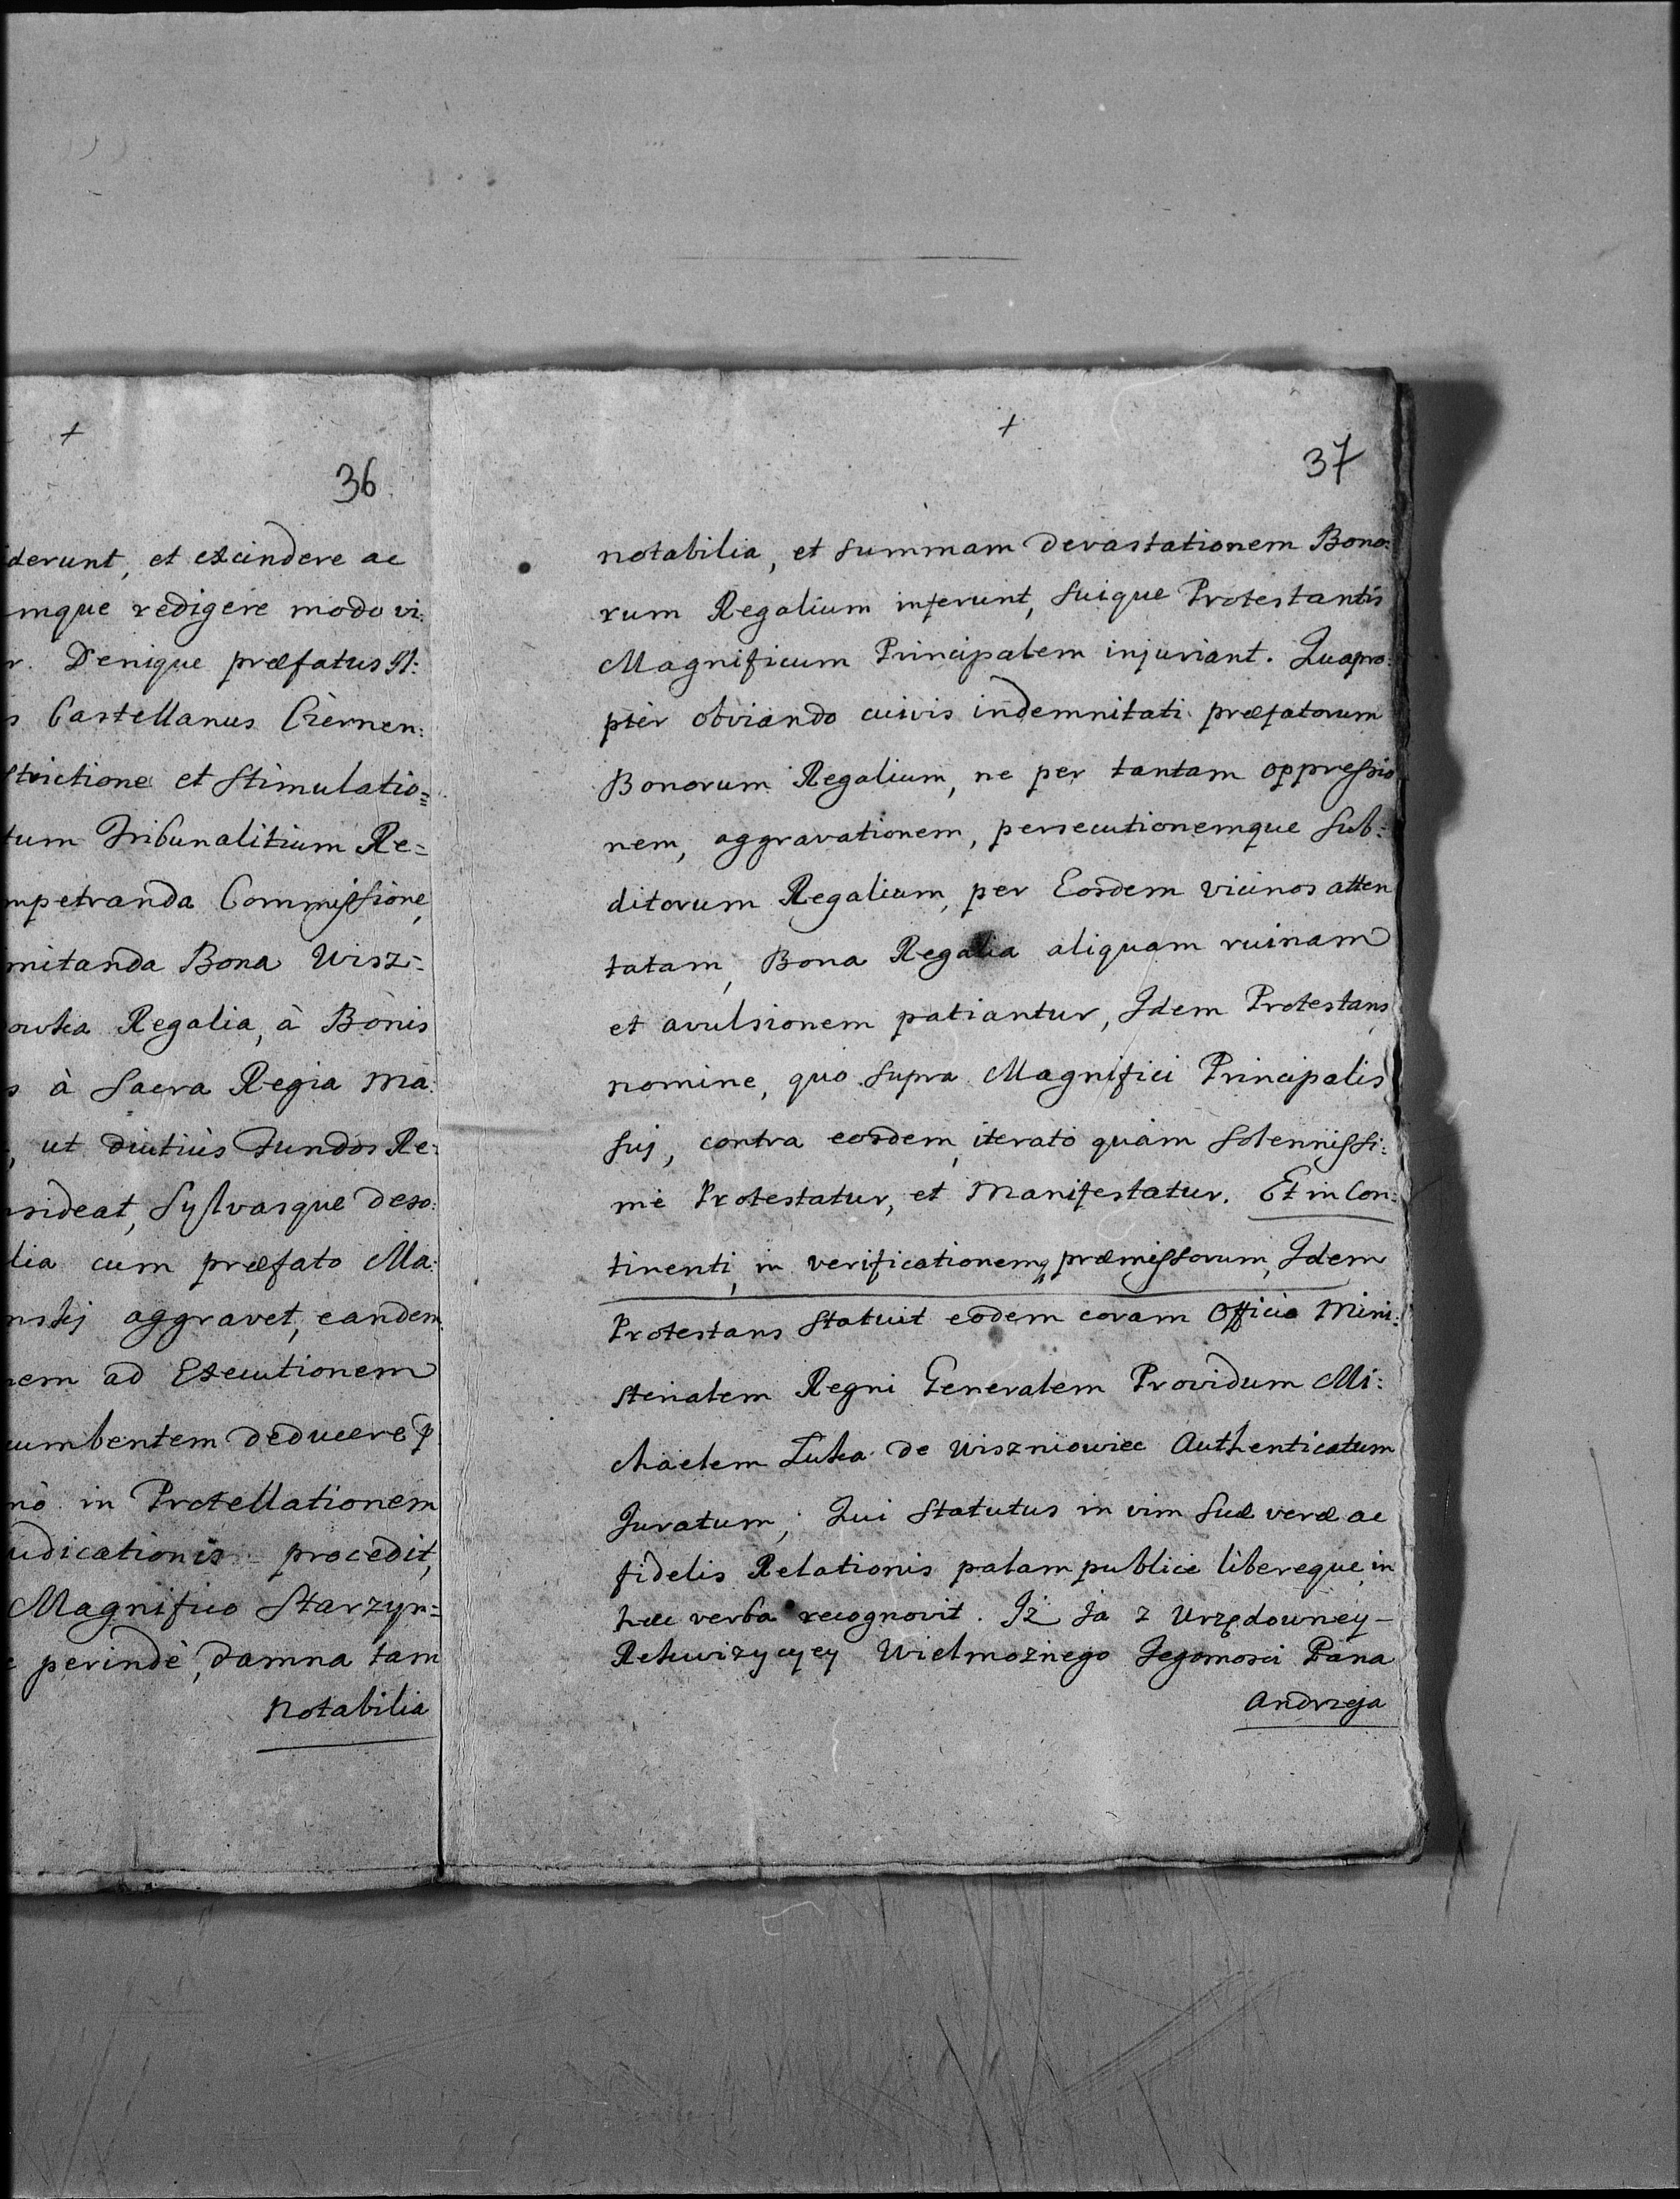 +
36
derunt, et excindere ac
mque redigere modo vi:
r. Denique præfatus M:
s Castellanus Czernen:
strictione et stimulatio=
tum Tribunalitium Re=
mpetranda Commissione,
mitanda Bona Wisz=
owka Regalia, à Bonis
s à Sacra Regia Ma:
, ut diutiùs Fundos Re:
sideat, Sylvasque deso:
lia cum præfato Ma:
nskj aggravet, eandem
nem ad Executionem
cumbentem deducere
nò in Protellationem
udicationis procedit,
Magnifico Starzyn=
e perindè, damna tam
notabilia
+
37
notabilia, et summam devastationem Bono:
rum Regalium inferunt, suique Protestantis
Magnificum Principalem injuriant. Quapro:
ptèr obviando cuivis indemnitati præfatorum
Bonorum Regalium, ne per tantam oppressio
nem, aggravationem, persecutionemque Sub:
ditorum Regalium, per Eosdem vicinos atten
tatam, Bona Regalia aliquam ruinam
et avulsionem patiantur, Idem Protestans,
nomine, quo supra Magnifici Principalis
suj, contra eosdem, iterato quàm solennissi:
mè Protestatur, et Manifestatur. Et in Con:
tinenti, in verificationemq præmissorum, Idem
Protestans statuit eodem coram Officio Mini:
sterialem Regni Generalem Providum Mi:
chaëlem Luka de Wiszniowiec Authenticatum
Juratum, Qui statutus in vim suæ veræ ac
fidelis Relationis palam publicè libereque in
hæc verba recognovit. Iż Ja z Urzędowney-
Rekwizycyey Wielmożnego Jegomosci Pana
Andrzeja